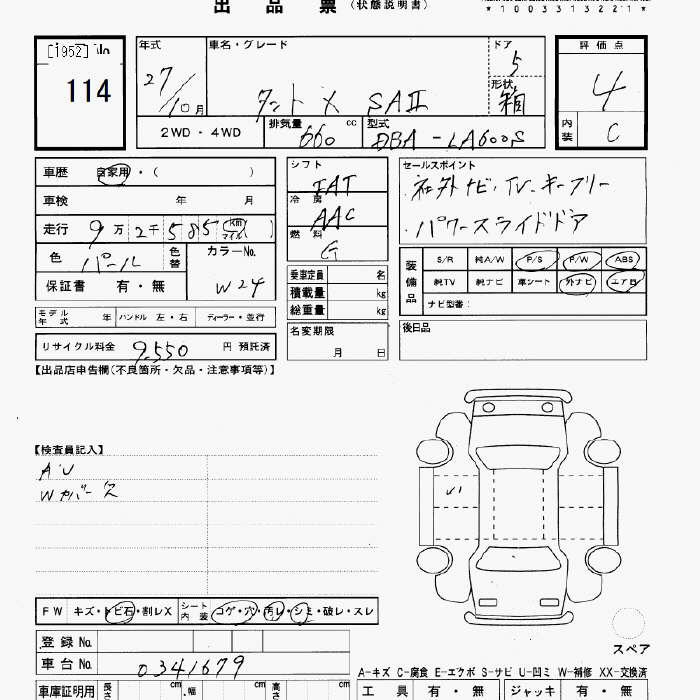 出品票 (状態説明書)
*1003313221*
[1952] 1/10
114
年式
27/10月
車名・グレード
タント X SAII
ドア
5
形状
箱
2WD・4WD
排気量
660 cc
型式
DBA-LA600S
評価点
4
内装
C
車歴 自家用・( )
車検 年 月
走行 9万2千585 km マイル ( )
色 パール 色替
カラーNo.
W24
保証書 有・無
モデル年式 年 ハンドル 左・右 ディーラー・並行
リサイクル料金 9,550 円 預託済
シフト
IAT
冷房
AAC
燃料
G
乗車定員 名
積載量 kg
総重量 kg
名変期限
月 日
セールスポイント
社外ナビ・TV・キーフリー
パワースライドドア
装備品
S/R 純A/W P/S P/W ABS
純TV 純ナビ 革シート 外ナビ エアB
ナビ型番:
後日品
【出品店申告欄(不良箇所・欠品・注意事項等)】
【検査員記入】
A・U
Wカバー欠
FW キズ・トビ石・割レX シート内装 コゲ・穴・汚レ・シミ・破レ・スレ
登録No.
車台No. 0341679
スペア
A-キズ C-腐食 E-エクボ S-サビ U-凹ミ W-補修 XX-交換済
車庫証明用 長さ cm 幅 cm 高さ cm
工具 有・無 ジャッキ 有・無